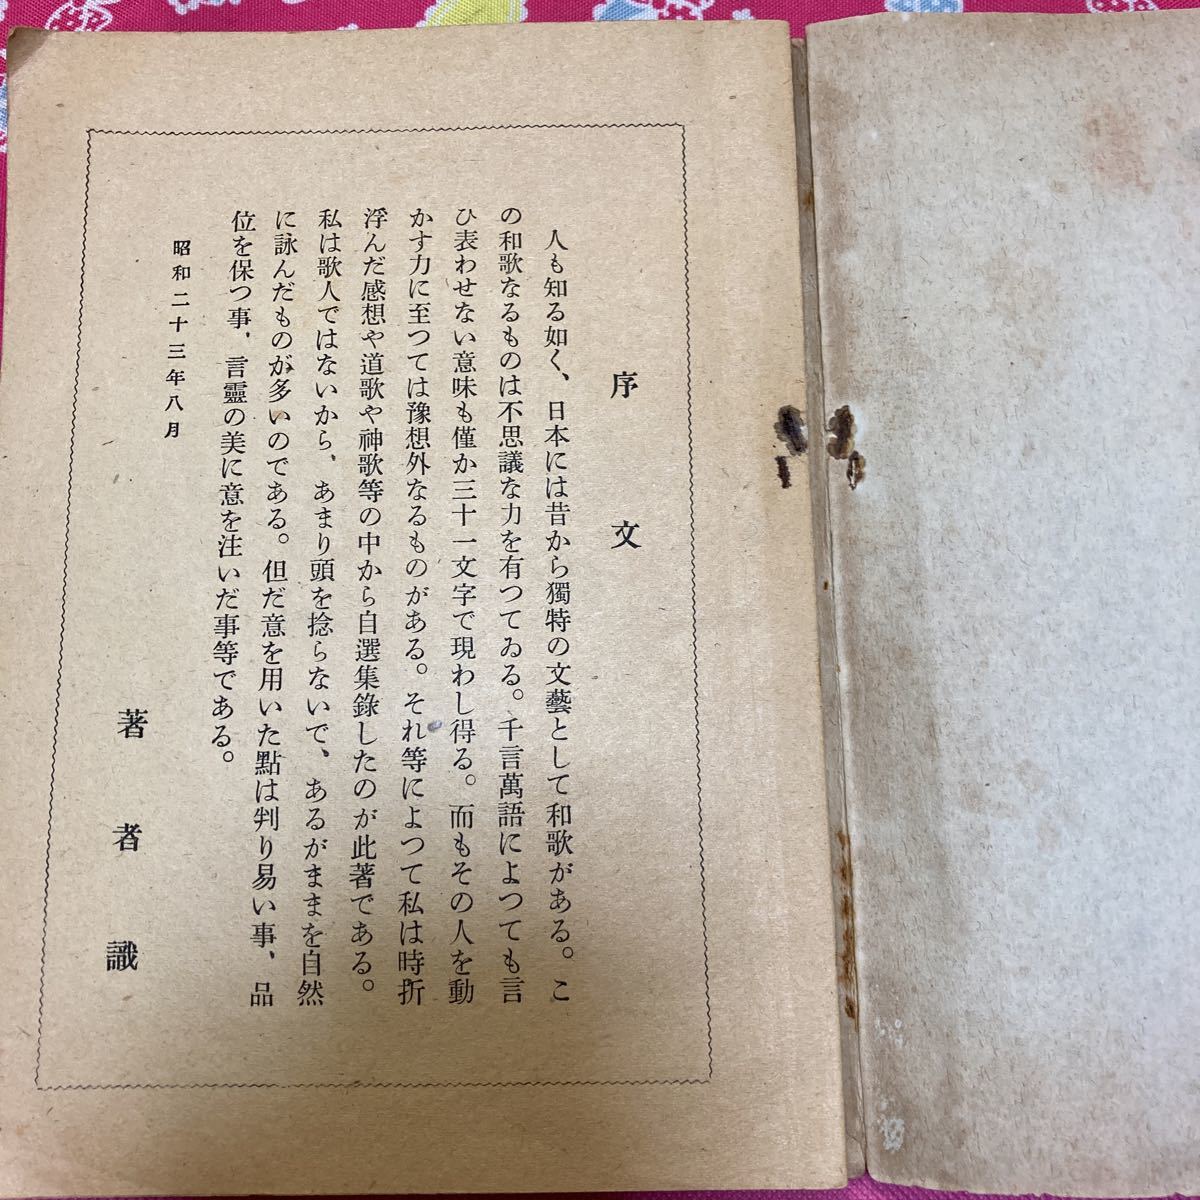 序文
人も知る如く、日本には昔から獨特の文藝として和歌がある。こ
の和歌なるものは不思議な力を有つてゐる。千言萬語によつても言
ひ表わせない意味も僅か三十一文字で現わし得る。而もその人を動
かす力に至つては豫想外なるものがある。それ等によつて私は時折
浮んだ感想や道歌や神歌等の中から自選集錄したのが此著である。
私は歌人ではないから、あまり頭を捻らないで、あるがままを自然
に詠んだものが多いのである。但だ意を用いた點は判り易い事、品
位を保つ事、言靈の美に意を注いだ事等である。
昭和二十三年八月
著者識